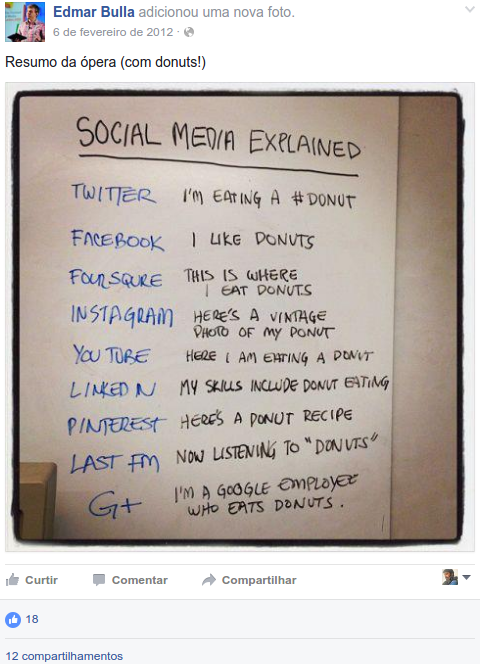 Edmar Bulla adicionou uma nova foto.
6 de fevereiro de 2012 ·
Resumo da ópera (com donuts!)
SOCIAL MEDIA EXPLAINED
TWITTER I'M EATING A #DONUT
FACEBOOK I LIKE DONUTS
FOURSQURE THIS IS WHERE
I EAT DONUTS
INSTAGRAM HERE'S A VINTAGE
PHOTO OF MY DONUT
YOU TUBE HERE I AM EATING A DONUT
LINKED N MY SKILLS INCLUDE DONUT EATING
PINTEREST HERE'S A DONUT RECIPE
LAST FM NOW LISTENING TO "DONUTS"
G+ I'M A GOOGLE EMPLOYEE
WHO EATS DONUTS.
Curtir Comentar Compartilhar
18
12 compartilhamentos